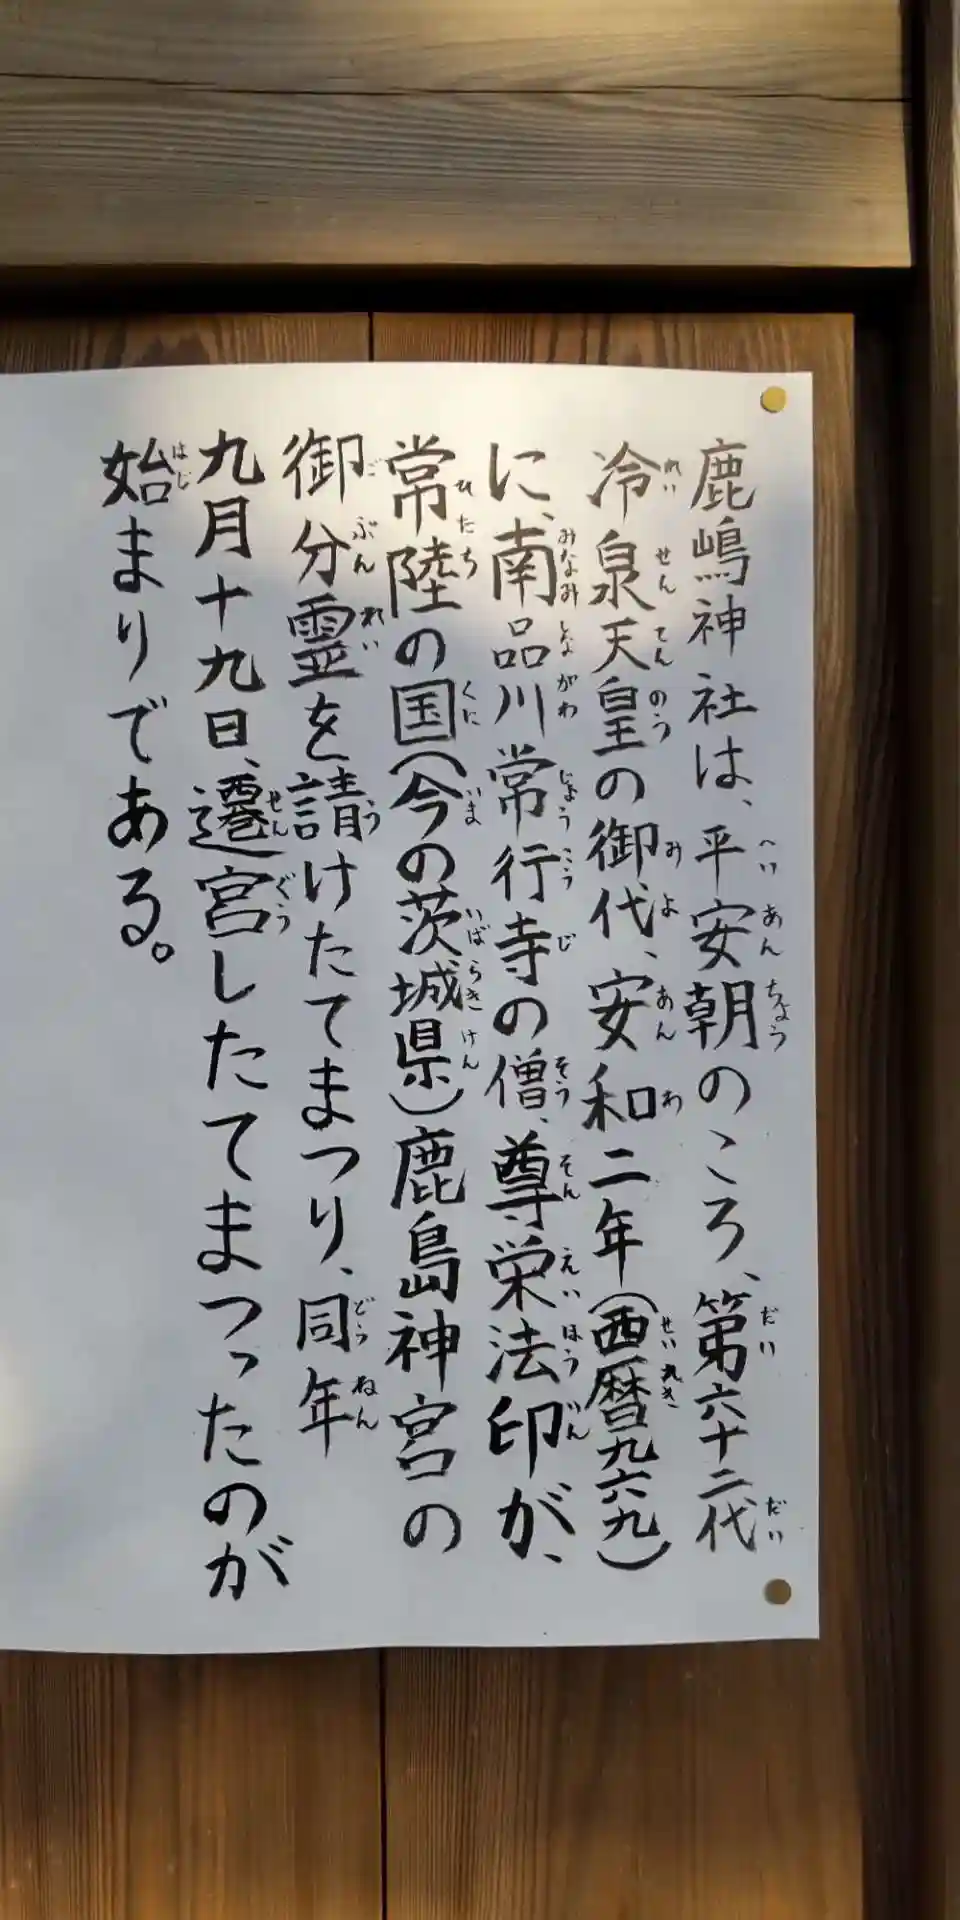 鹿嶋神社は、平安朝のころ、第六十二代
冷泉天皇の御代、安和二年(西暦九六九)
に、南品川常行寺の僧、尊栄法印が、
常陸の国(今の茨城県)鹿島神宮の
御分霊を請けたてまつり、同年
九月十九日、遷宮したてまつったのが
始まりである。